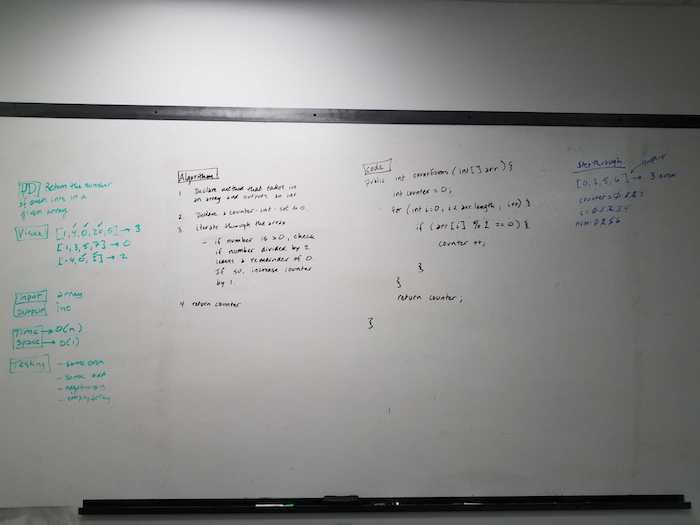 PD Return the number
of even ints in a
given array.
Visual [1, 4, 0, 20, 5] → 3
[-1, 3, 5, 7] → 0
→ 2
Input array
Output int
Time → O(n)
Space → O(1)
Testing - some even
- some odd
- negatives
- empty array
Algorithm
1 Declare method that takes in
an array and outputs an int
2. Declare a counter - int - set to 0.
3. iterate through the array
- if number is >0, check
if number divided by 2
leaves a remainder of 0.
If so, increase counter
by 1.
4 return counter
Code
Public int countEvens (int[] arr) {
int counter = 0;
for (int i=0; i < arr.length; i++) {
if (arr[i] % 2 == 0) {
counter ++;
}
}
return counter;
}
Step through
input
→ 3
counter =
i = 0 1 2 3 4